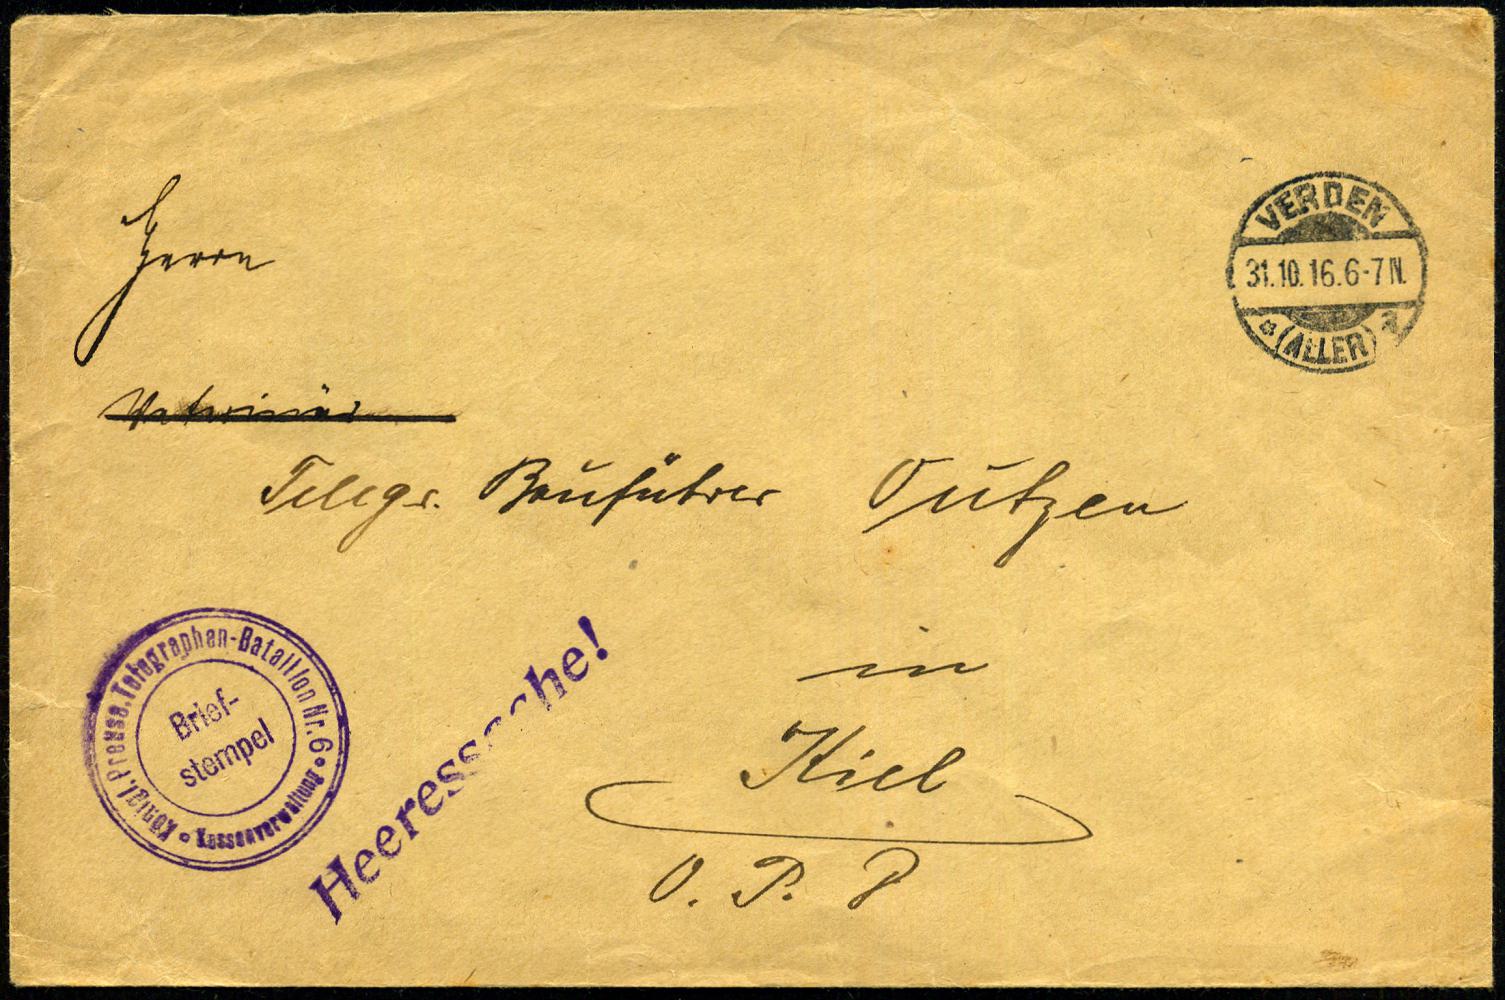 VERDEN
31.10.16.6-7N.
* (ALLER)
Herrn
Veterinär
Telegr. Bauführer Outzen
in
Kiel
O. P. D
Königl. Preuss. Telegraphen-Bataillon Nr. 6
Kassenverwaltung
Brief-
stempel
Heeressache!